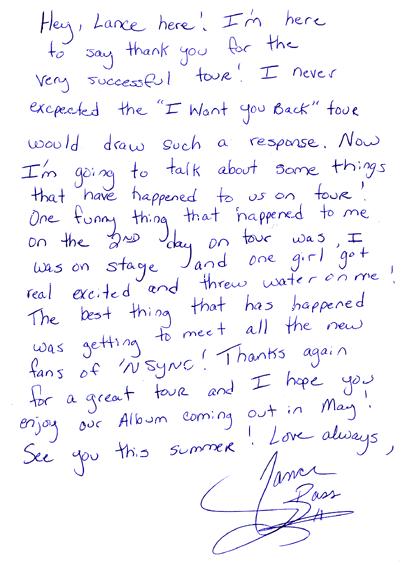 Hey, Lance here! I'm here
to say thank you for the
very successful tour! I never
excpected the "I Want you Back" tour
would draw such a response. Now
I'm going to talk about some things
that have happened to us on tour!
One funny thing that happened to me
on the 2ND day on tour was, I
was on stage and one girl got
real excited and threw water on me!
The best thing that has happened
was getting to meet all the new
fans of 'NSYNC! Thanks again
for a great tour and I hope you
enjoy our Album coming out in May!
See you this summer! Love always,
Lance
Bass